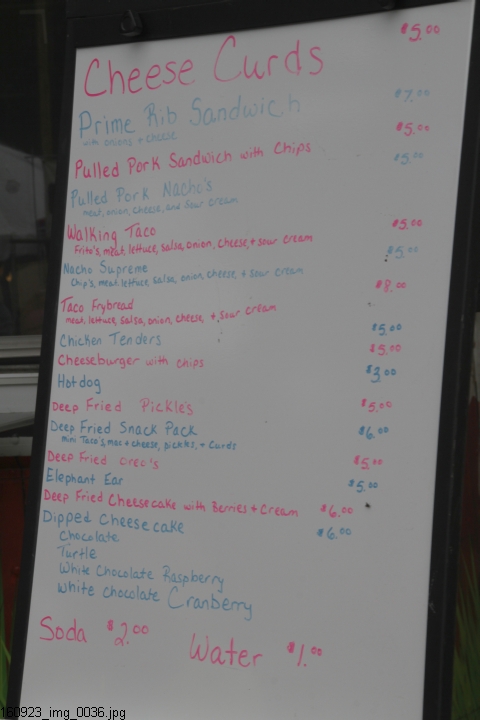 Cheese Curds $5.00
Prime Rib Sandwich $7.00
with onions + cheese
Pulled Pork Sandwich with Chips $5.00
Pulled Pork Nacho's $5.00
meat, onion, cheese, and sour cream
Walking Taco $5.00
Frito's, meat, lettuce, salsa, onion, cheese, + sour cream
Nacho Supreme $5.00
Chip's, meat, lettuce, salsa, onion, cheese, + sour cream
Taco Frybread $8.00
meat, lettuce, salsa, onion, cheese, + sour cream
Chicken Tenders $5.00
Cheeseburger with chips $5.00
Hotdog $3.00
Deep Fried Pickle's $5.00
Deep Fried Snack Pack $6.00
mini Taco's, mac + cheese, pickles, + Curds
Deep Fried oreo's $5.00
Elephant Ear $5.00
Deep Fried Cheesecake with Berries + Cream $6.00
Dipped Cheesecake $6.00
Chocolate
Turtle
White Chocolate Raspberry
White chocolate Cranberry
Soda $2.00
Water $1.00
160923_img_0036.jpg